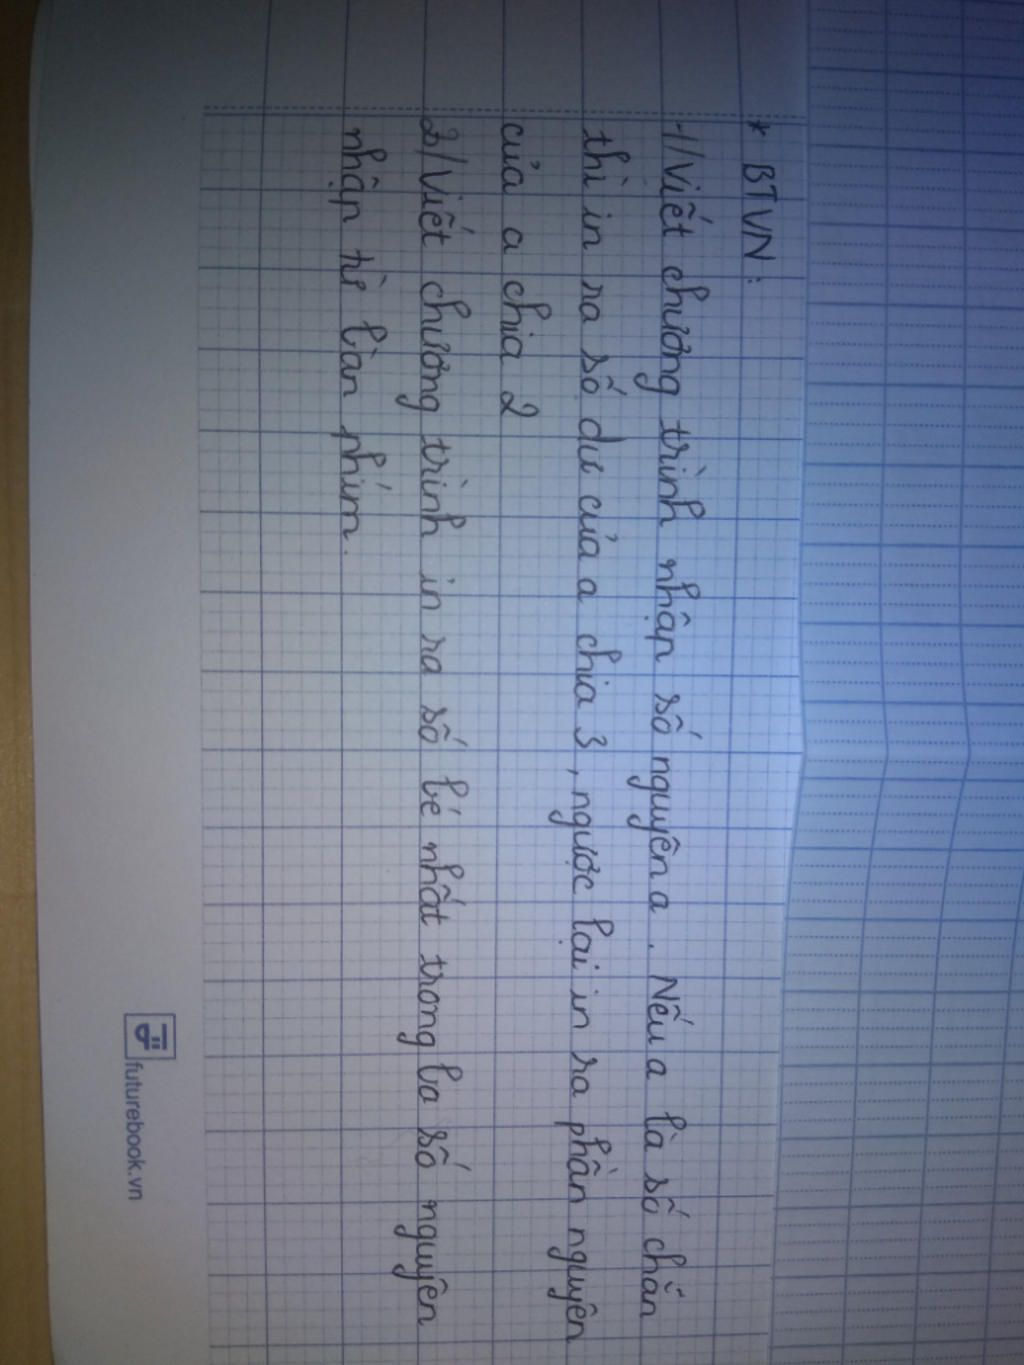 * BTVN:
1/ Viết chương trình nhập số nguyên a. Nếu a là số chẵn
thì in ra số dư của a chia 3, ngược lại in ra phần nguyên
của a chia 2
2/ Viết chương trình in ra số bé nhất trong ba số nguyên
nhập từ bàn phím.
futurebook.vn